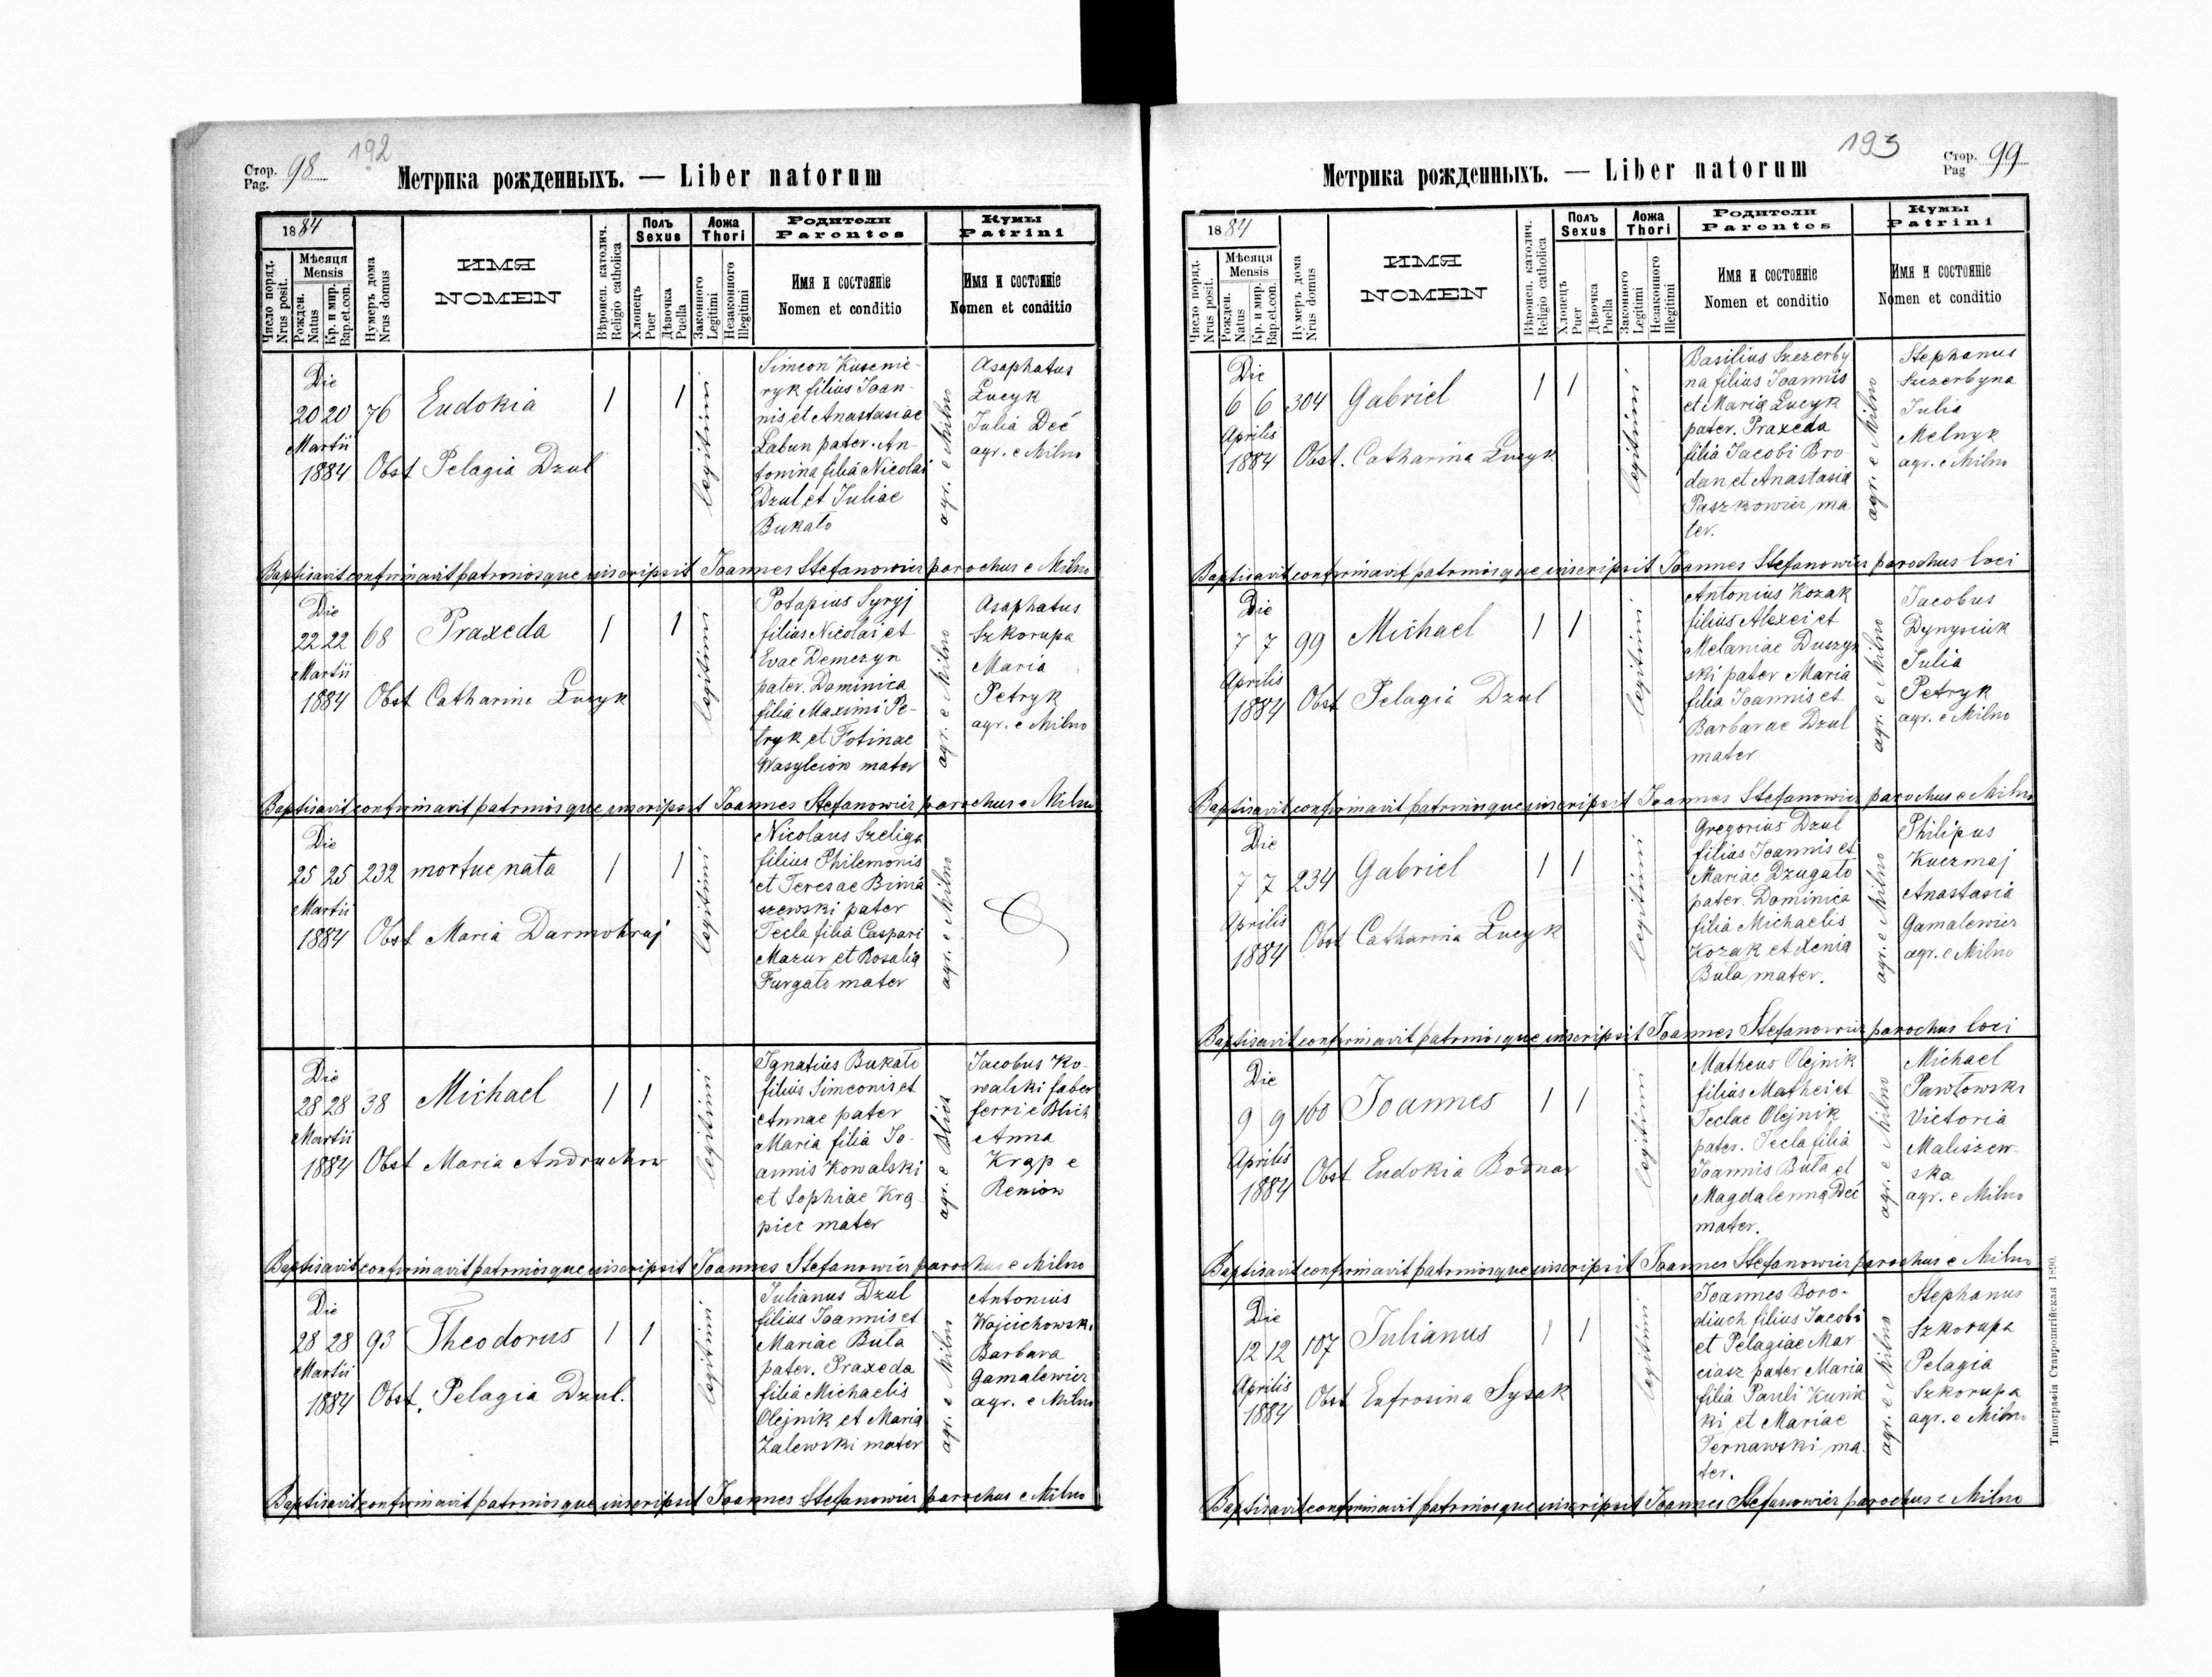 Стор.
Pag. 98
192
Метрика рожденныхъ. — Liber natorum
1884
Число поряд.
Nrus posit.
Мѣсяця
Mensis
Рожден.
Natus
Кр. и мир.
Bap.et.con.
Нумеръ дома
Nrus domus
ИМЯ
NOMEN
Вѣроисп. католич.
Religio catholica
Полъ
Sexus
Хлопецъ
Puer
Дѣвочка
Puella
Ложа
Thori
Законного
Legitimi
Незаконного
Illegitimi
Родители
Parentes
Имя и состоянiе
Nomen et conditio
Кумы
Patrini
Имя и состоянiе
Nomen et conditio
Die
20 20 76 Eudokia 1 1
Martii
1884 Obst Pelagia Dzul
legitimi
Simeon Kusmie-
ryk filius Joan-
nis et Anastasiae
Labun pater. An-
tonina filia Nicolai
Dzul et Juliae
Bukało
agr. e Milno
Asaphatus
Łucyk
Julia Deć
agr. e Milno
Baptisavit confirmavit patrinosque inscripsit Joannes Stefanowicz parochus e Milno
Die
22 22 68 Praxeda 1 1
Martii
1884 Obst Catharina Łucyk
legitimi
Potapius Syryj
filius Nicolai et
Evae Demczyn
pater. Dominica
filia Maximi Pe-
tryk et Fotinae
Wasylciów mater
agr. e Milno
Asaphatus
Szkorupa
Maria
Petryk
agr. e Milno
Baptisavit confirmavit patrinosque inscripsit Joannes Stefanowicz parochus e Milno
Die
25 25 232 mortue nata 1 1
Martii
1884 Obst Maria Darmohraj
legitimi
Nicolaus Szeliga
filius Philemonis
et Teresae Bima
szewski pater
Tecla filia Caspari
Mazur et Rosalia
Furgało mater
agr. e Milno
Die
28 28 38 Michael 1 1
Martii
1884 Obst Maria Andruchow
legitimi
Ignatius Bukało
filius Simeonis et
Annae pater
Maria filia Jo-
annis Kowalski
et Sophiae Krą-
piec mater
agr. e Blich
Jacobus Ko-
walski faber
ferri e Blich
Anna
Krąp e
Reniów
Baptisavit confirmavit patrinosque inscripsit Joannes Stefanowicz parochus e Milno
Die
28 28 93 Theodorus 1 1
Martii
1884 Obst. Pelagia Dzul.
legitimi
Julianus Dzul
filius Joannis et
Mariae Buła
pater. Praxeda
filia Michaelis
Olejnik et Maria
Zalewski mater
agr. e Milno
Antonius
Wojciechowski
Barbara
Gamalewicz
agr. e Milno
Baptisavit confirmavit patrinosque inscripsit Joannes Stefanowicz parochus e Milno
193
Стор.
Pag 99
Метрика рожденныхъ. — Liber natorum
1884
Число поряд.
Nrus posit.
Мѣсяця
Mensis
Рожден.
Natus
Кр. и мир.
Bap.et.con.
Нумеръ дома
Nrus domus
ИМЯ
NOMEN
Вѣроисп. католич.
Religio catholica
Полъ
Sexus
Хлопецъ
Puer
Дѣвочка
Puella
Ложа
Thori
Законного
Legitimi
Незаконного
Illegitimi
Родители
Parentes
Имя и состоянiе
Nomen et conditio
Кумы
Patrini
Имя и состоянiе
Nomen et conditio
Die
6 6 304 Gabriel 1 1
Aprilis
1884 Obst. Catharina Łucyk
legitimi
Basilius Szczerby
na filius Joannis
et Maria Łucyk
pater. Praxeda
filia Jacobi Bro-
dan et Anastasia
Paszkowicz ma
ter.
agr. e Milno
Stephanus
Szczerbyna
Julia
Melnyk
agr. e Milno
Baptisavit confirmavit patrinosque inscripsit Joannes Stefanowicz parochus loci
Die
7 7 99 Michael 1 1
Aprilis
1884 Obst Pelagia Dzul
legitimi
Antonius Kozak
filius Alexei et
Melaniae Duszyn
ski pater Maria
filia Joannis et
Barbarae Dzul
mater
agr. e Milno
Jacobus
Dynysiuk
Julia
Petryk
agr. e Milno
Baptisavit confirmavit patrinosque inscripsit Joannes Stefanowicz parochus e Milno
Die
7 7 234 Gabriel 1 1
Aprilis
1884 Obst Catharina Łucyk
legitimi
Gregorius Dzul
filius Joannis et
Mariae Dzugało
pater. Dominica
filia Michaelis
Kozak et Xenia
Buła mater.
agr. e Milno
Philipus
Kuczmaj
Anastasia
Gamalewicz
agr. e Milno
Baptisavit confirmavit patrinosque inscripsit Joannes Stefanowicz parochus loci
Die
9 9 160 Joannes 1 1
Aprilis
1884 Obst Eudokia Bodnar
legitimi
Matheus Olejnik
filius Mathei et
Teclae Olejnik
pater. Tecla filia
Joannis Buła et
Magdalenna Deć
mater.
agr. e Milno
Michael
Pawłowski
Victoria
Maliszew-
ska
agr. e Milno
Baptisavit confirmavit patrinosque inscripsit Joannes Stefanowicz parochus e Milno
Die
12 12 187 Julianus 1 1
Aprilis
1884 Obst Eufrosina Sysak
legitimi
Joannes Boro-
diuch filius Jacobi
et Pelagiae Mar-
ciasz pater Maria
filia Pauli Kunic
ki et Mariae
Ternawski ma-
ter.
agr. e Milno
Stephanus
Szkorupa
Pelagia
Szkorupa
agr. e Milno
Baptisavit confirmavit patrinosque inscripsit Joannes Stefanowicz parochus e Milno
Типографiя Ставропигiйская 1890.